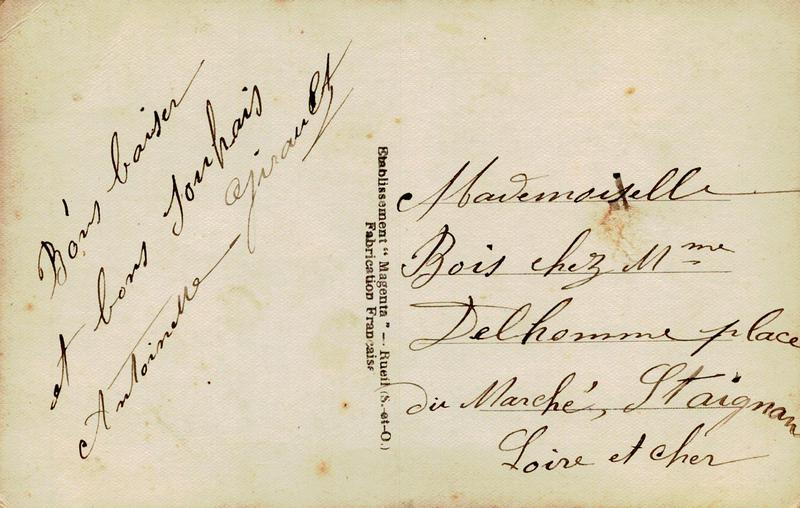 Bons baiser
et bons souhais
Antoinette Girault
Etablissement "Magenta" - Rueil (S.-et-O.)
Fabrication Française
Mademoiselle
Bois chez Mme
Delhomme place
du Marché, St aignan
Loire et Cher